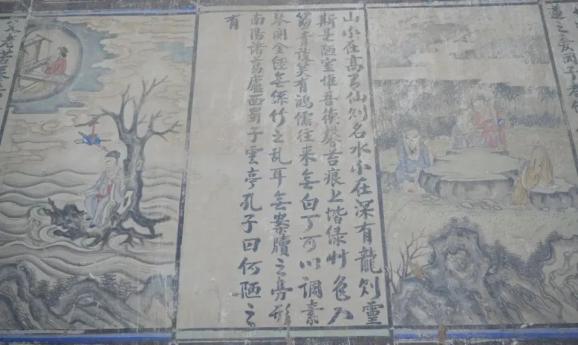 山不在高有仙则名水不在深有龍则靈
斯是陋室惟吾德馨苔痕上階绿艸色入
簾青談笑有鴻儒往来無白丁可以調素
琴閲金經無絲竹之乱耳無案牘之劳形
南陽諸葛廬西蜀子雲亭孔子曰何陋之
有